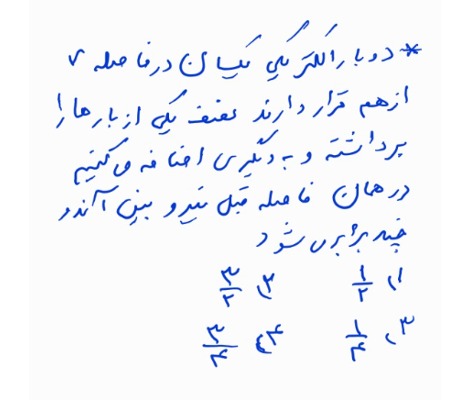 * دو بار الکتریکی یکسان در فاصله r
از هم قرار دارند نصف یکی از بارها را
برداشته و به دیگری اضافه می‌کنیم
در همان فاصله قبل نیرو بین آندو
چند برابر می‌شود
۱) ۱/۲ ۲) ۳/۲
۳) ۱/۴ ۴) ۳/۴